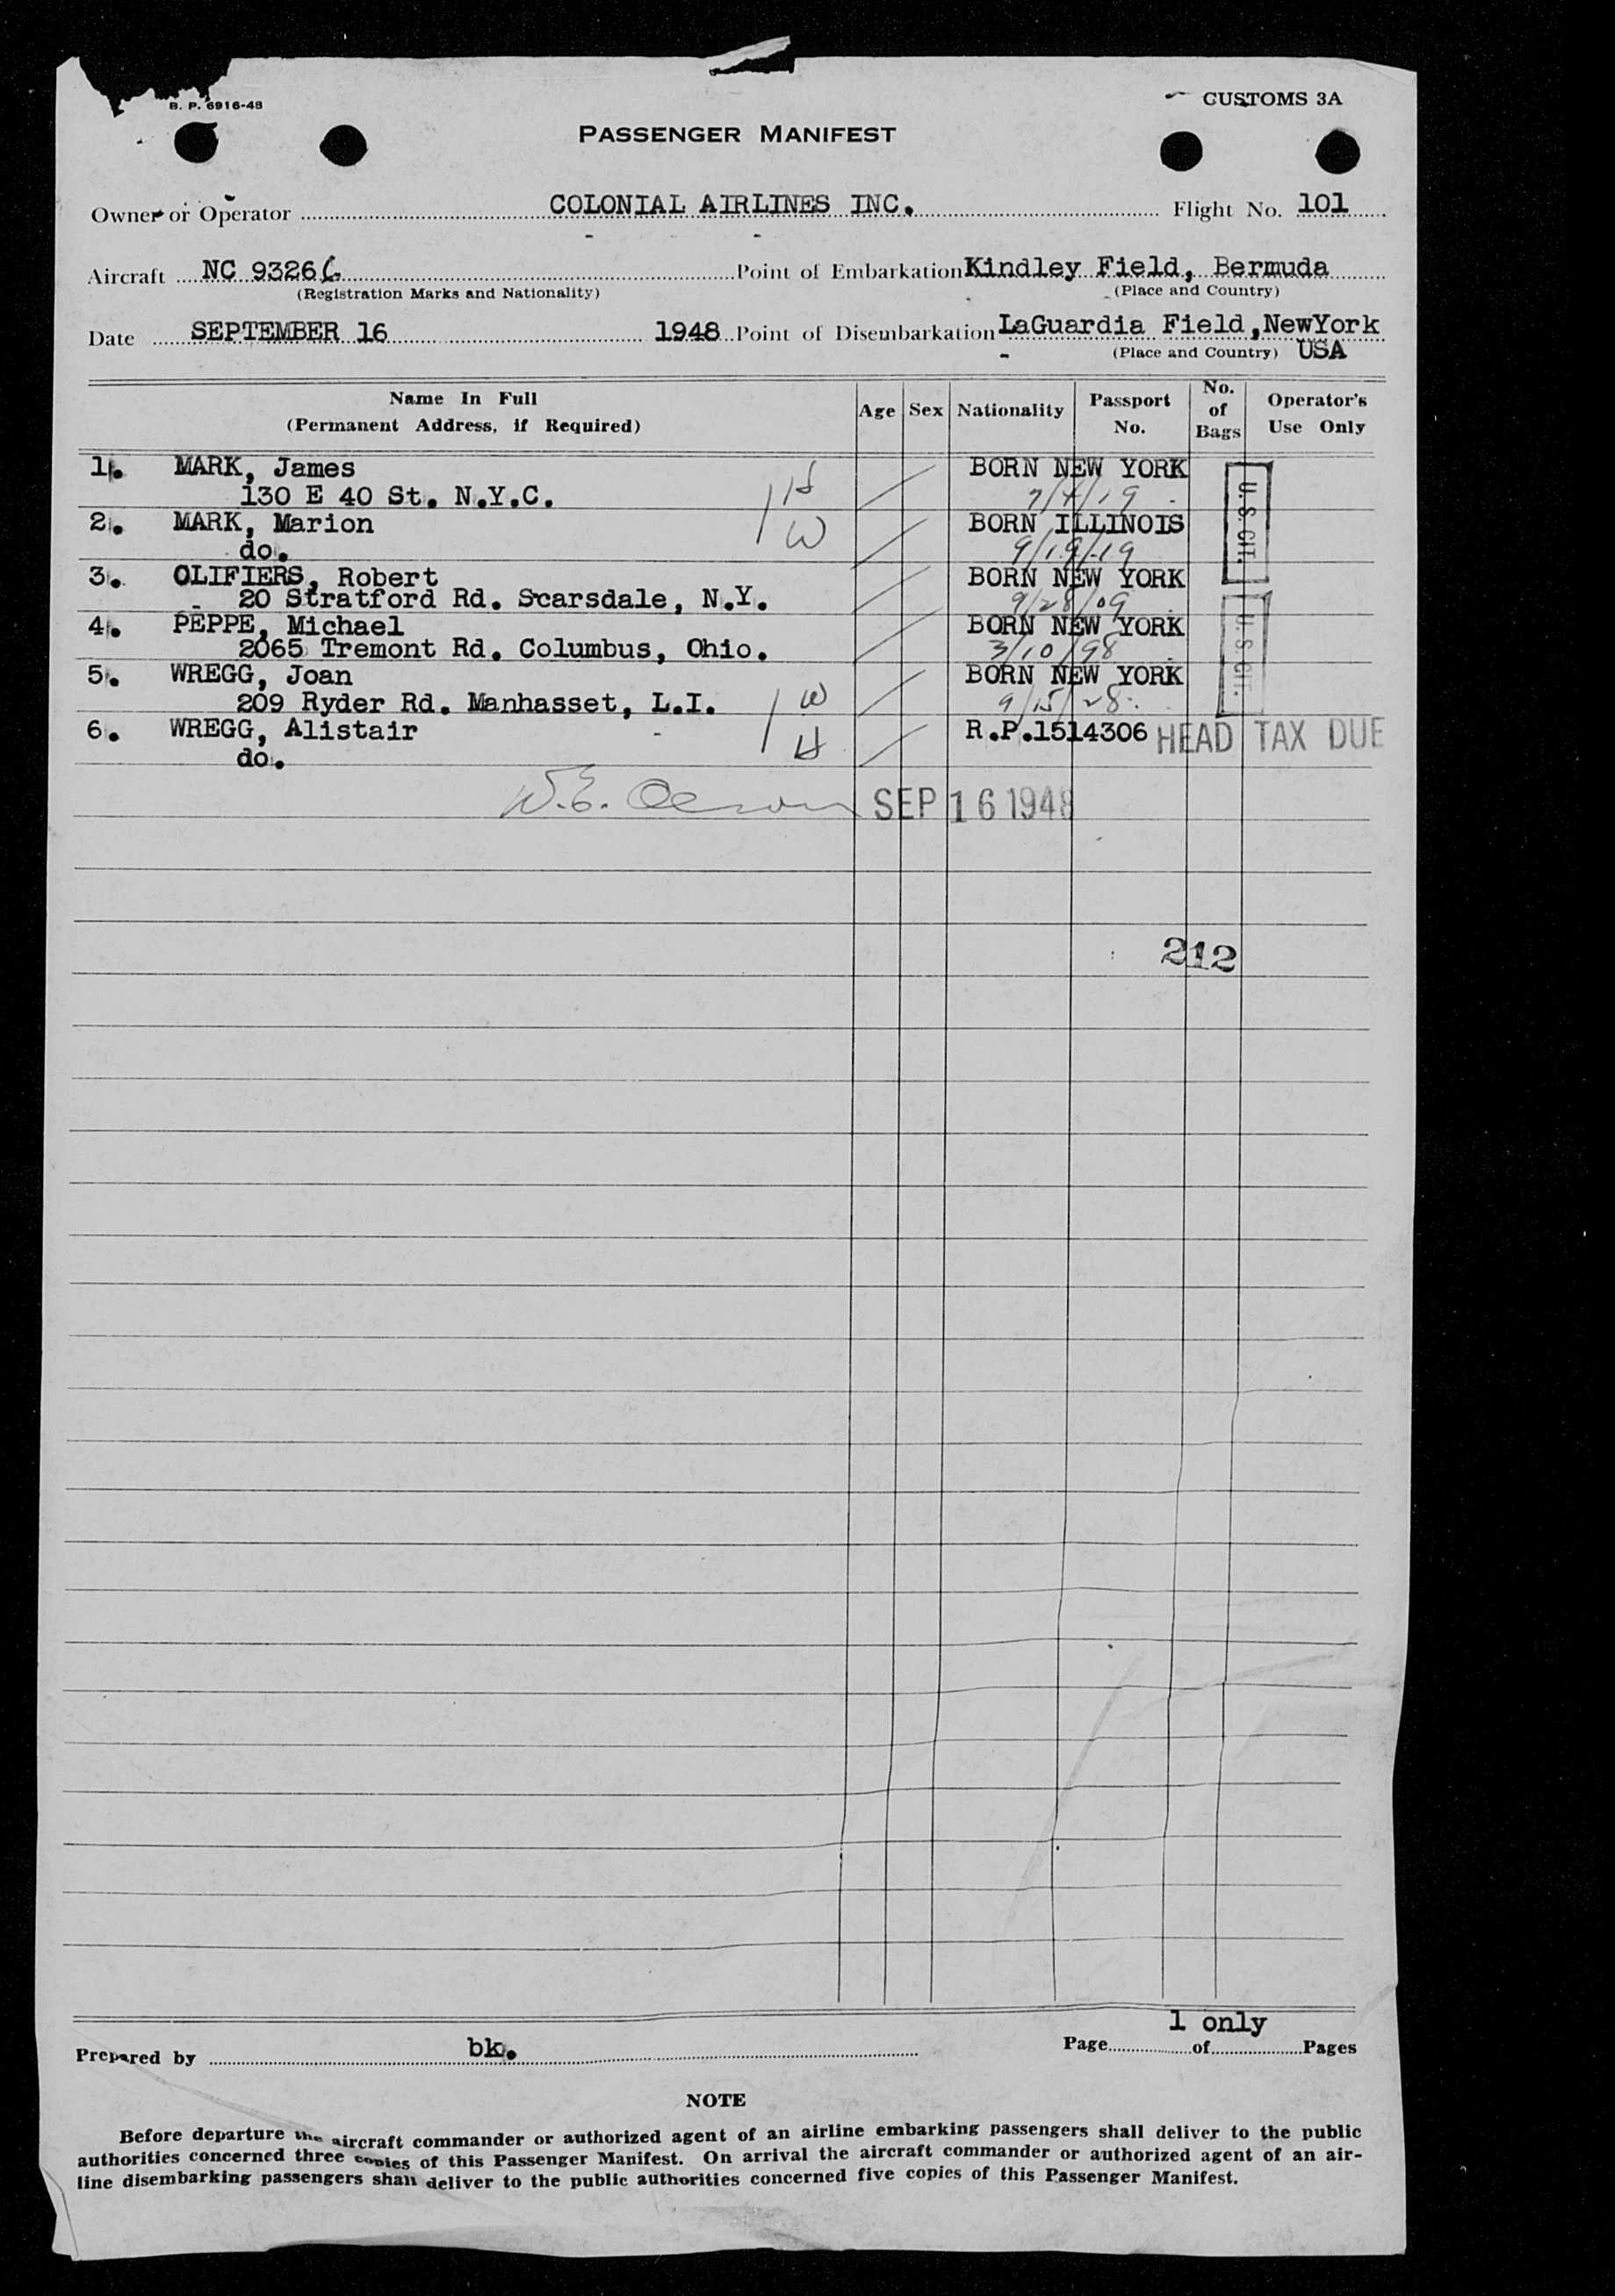 B. P. 6916-48
CUSTOMS 3A
PASSENGER MANIFEST
Owner or Operator COLONIAL AIRLINES INC. Flight No. 101
Aircraft NC 93266 Point of Embarkation Kindley Field, Bermuda
(Registration Marks and Nationality) (Place and Country)
Date SEPTEMBER 16 1948 Point of Disembarkation LaGuardia Field, NewYork
(Place and Country) USA
Name In Full (Permanent Address, if Required) Age Sex Nationality Passport No. No. of Bags Operator's Use Only
1. MARK, James BORN NEW YORK
130 E 40 St. N.Y.C. H 7/4/19
2. MARK, Marion W BORN ILLINOIS
do. 9/19/19
U.S. CIT.
3. OLIFIERS, Robert BORN NEW YORK
20 Stratford Rd. Scarsdale, N.Y. 9/28/09
4. PEPPE, Michael BORN NEW YORK
2065 Tremont Rd. Columbus, Ohio. 3/10/98
U.S. CIT.
5. WREGG, Joan BORN NEW YORK
209 Ryder Rd. Manhasset, L.I. W 9/15/28
6. WREGG, Alistair R.P.1514306 HEAD TAX DUE
do. H
W.E. SEP 16 1948
212
1 only
Prepared by bk. Page of Pages
NOTE
Before departure the aircraft commander or authorized agent of an airline embarking passengers shall deliver to the public
authorities concerned three copies of this Passenger Manifest. On arrival the aircraft commander or authorized agent of an air-
line disembarking passengers shall deliver to the public authorities concerned five copies of this Passenger Manifest.